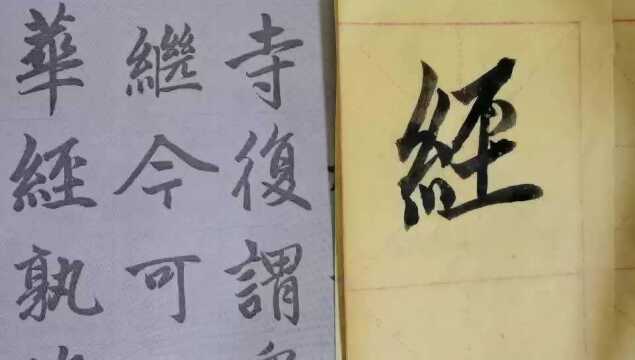 寺復謂
繼今可
華經孰
經